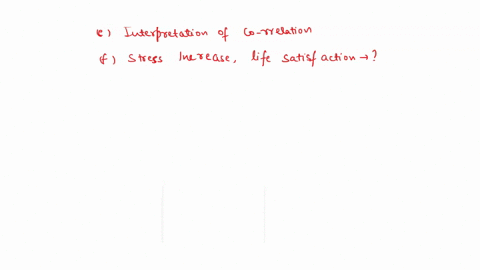 e) Interpretation of Co-rrelation
f) Stress Increase, life satisfaction → ?